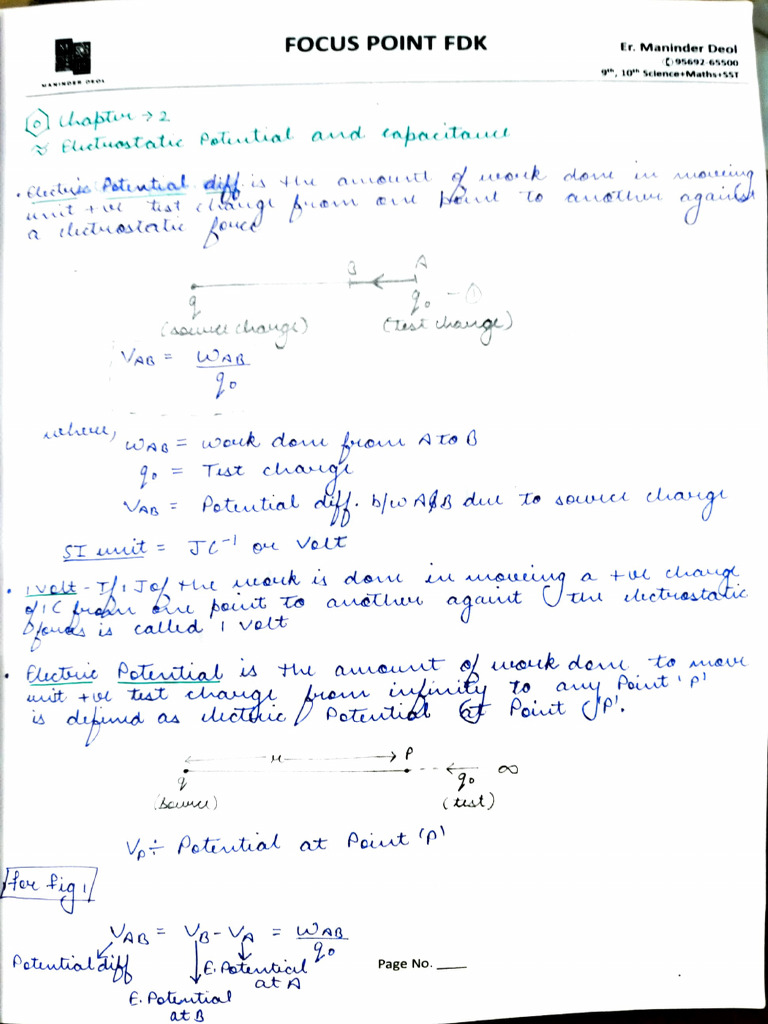 FOCUS POINT FDK
MANINDER DEOL
Er. Maninder Deol
95692-65500
9th, 10th Science+Maths+SST
Chapter → 2
Electrostatic Potential and capacitance
• Electric Potential diff is the amount of work done in moveing
unit +ve test charge from one point to another against
a electrostatic force
B A
q q₀ - ①
(source charge) (test charge)
V_AB = W_AB / q₀
where,
W_AB = work done from A to B
q₀ = Test charge
V_AB = Potential diff. b/w A & B due to source charge
SI unit = JC⁻¹ or Volt
• 1 volt - If 1 J of the work is done in moveing a +ve charge
of 1 C from one point to another againt the electrostatic
forces is called 1 volt
• Electric Potential is the amount of work done to move
unit +ve test charge from infinity to any Point 'P'
is defined as electric Potential at Point 'P'.
r P
q q₀ ∞
(source) (test)
V_P ÷ Potential at Point 'P'
For fig 1
V_AB = V_B - V_A = W_AB / q₀
Potential diff E. Potential at A
E. Potential at B
Page No. ___